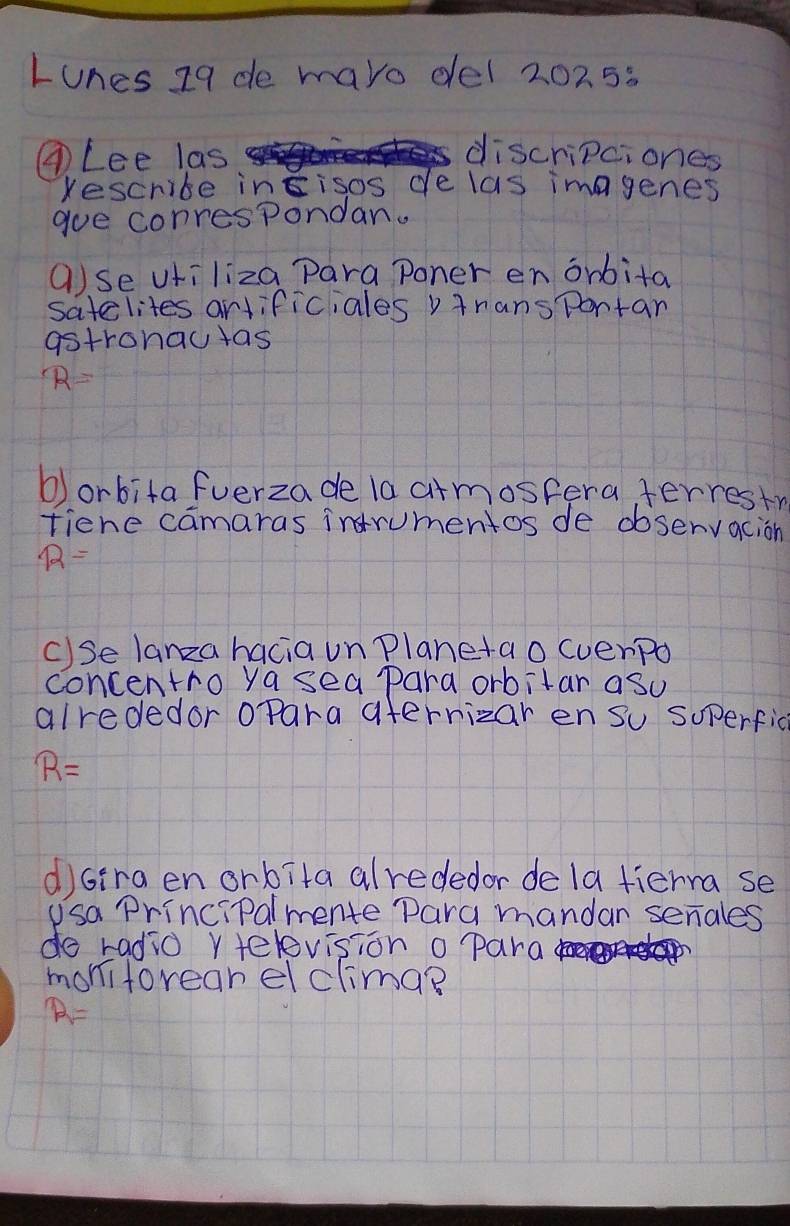 Lunes 19 de mayo del 2025:
④ Lee las discripciones
y escribe incisos de las imagenes
que correspondan.
a) se utiliza para poner en órbita
satelites artificiales y transportar
astronautas
R=
b) orbita fuerza de la atmosfera terrestr
Tiene cámaras intrumentos de observación
R=
c) Se lanza hacia un planeta o cuerpo
concentro ya sea para orbitar asu
alrededor o para aterrizar en su superfici
R=
d) Gira en orbita alrededor de la tierra se
usa Principalmente Para mandar señales
de radio y televisión o para
monitorear el clima?
R=